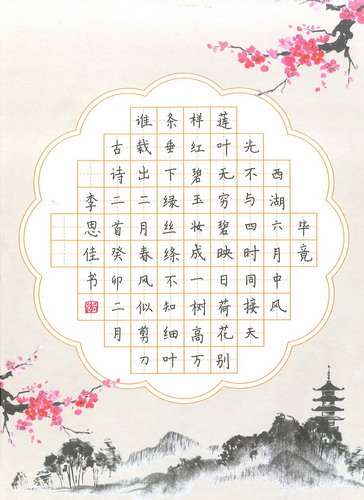 毕竟
西湖六月中风
光不与四时同接天
莲叶无穷碧映日荷花别
样红碧玉妆成一树高万
条垂下绿丝绦不知细叶
谁裁出二月春风似剪刀
古诗二首癸卯二月
李思佳书